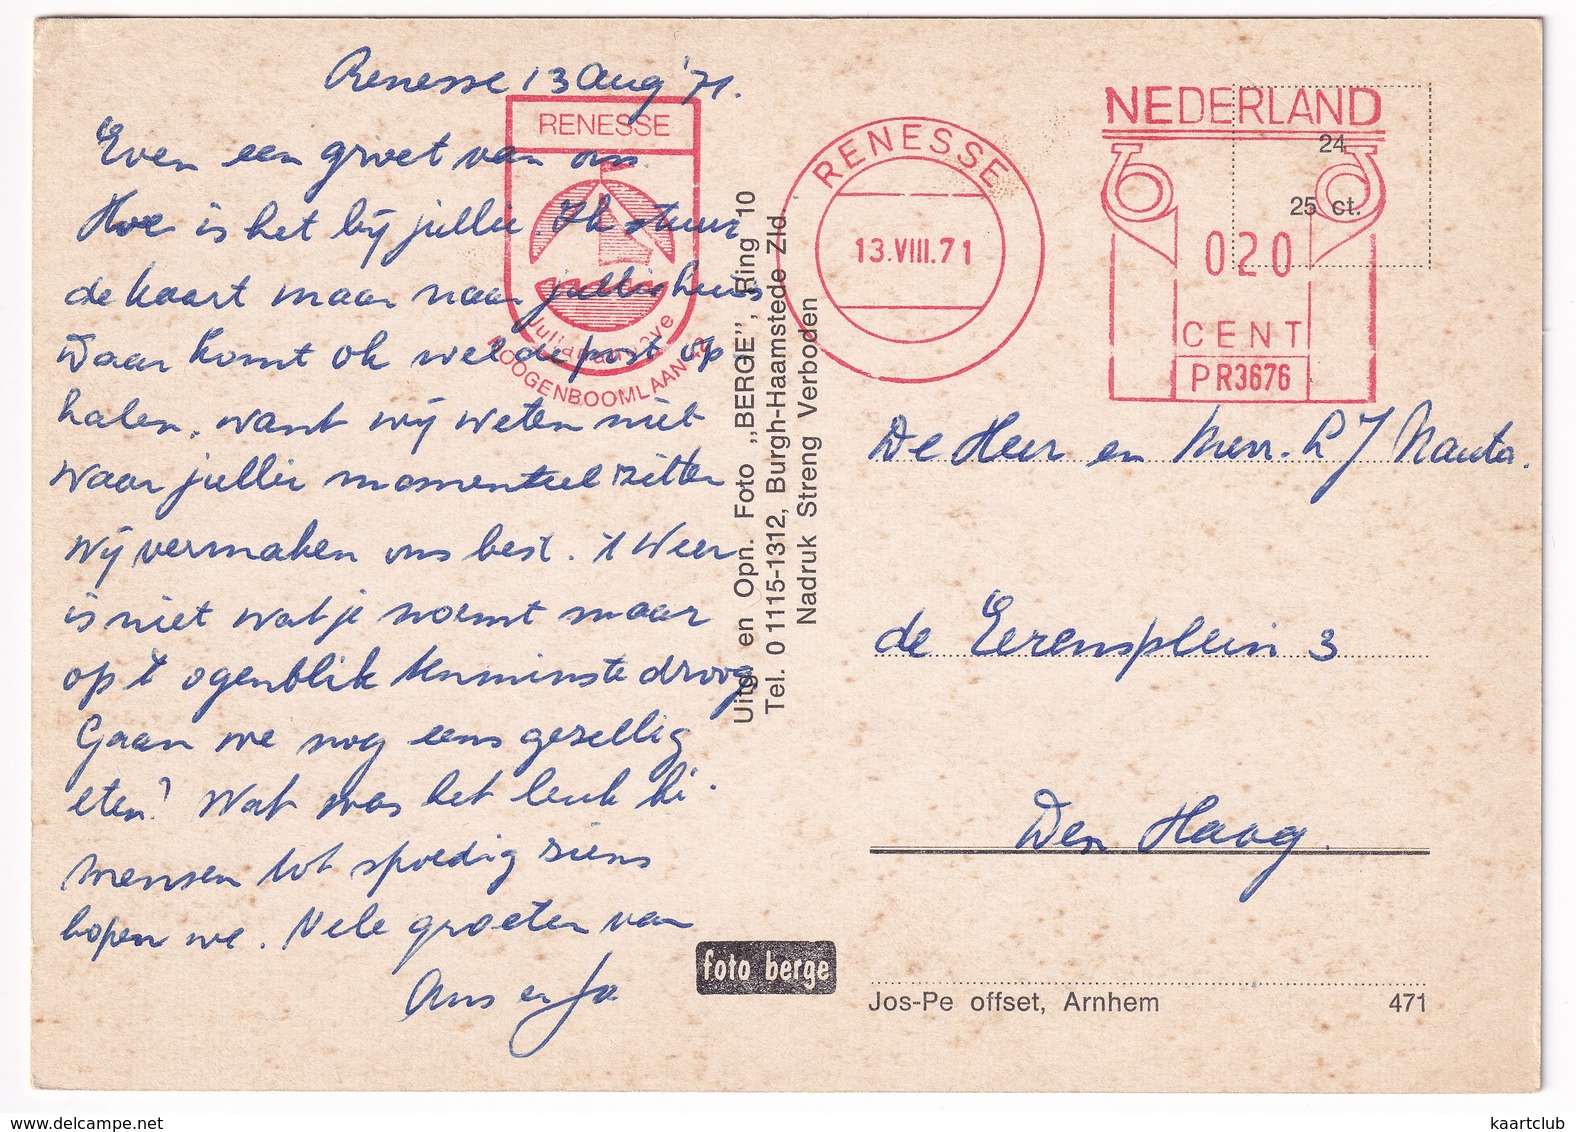 Renesse 13 Aug '71.
Even een groet van ons.
Hoe is het bij jullie. Ik stuur
de kaart maar naar jullie huis
Daar komt ok wel de post op
halen, want wij weten niet
waar jullie momenteel zitten
Wij vermaken ons best. 't Weer
is niet wat je noemt maar
op 't ogenblik tenminste droog
Gaan we nog eens gezellig
eten? Wat was het leuk hè.
Mensen tot spoedig ziens
hopen we. Vele groeten van
Ans en Jo
RENESSE
Julianahoeve
HOOGENBOOMLAAN
Uitg. en Opn. Foto „BERGE", Ring 10
Tel. 0 1115-1312, Burgh-Haamstede Zld.
Nadruk Streng Verboden
RENESSE
13.VIII.71
NEDERLAND
24
25 ct.
020
CENT
PR3676
De Heer en Mevr. L J Nauta.
de Eerensplein 3
Den Haag.
foto berge
Jos-Pe offset, Arnhem 471
www.delcampe.net
kaartclub